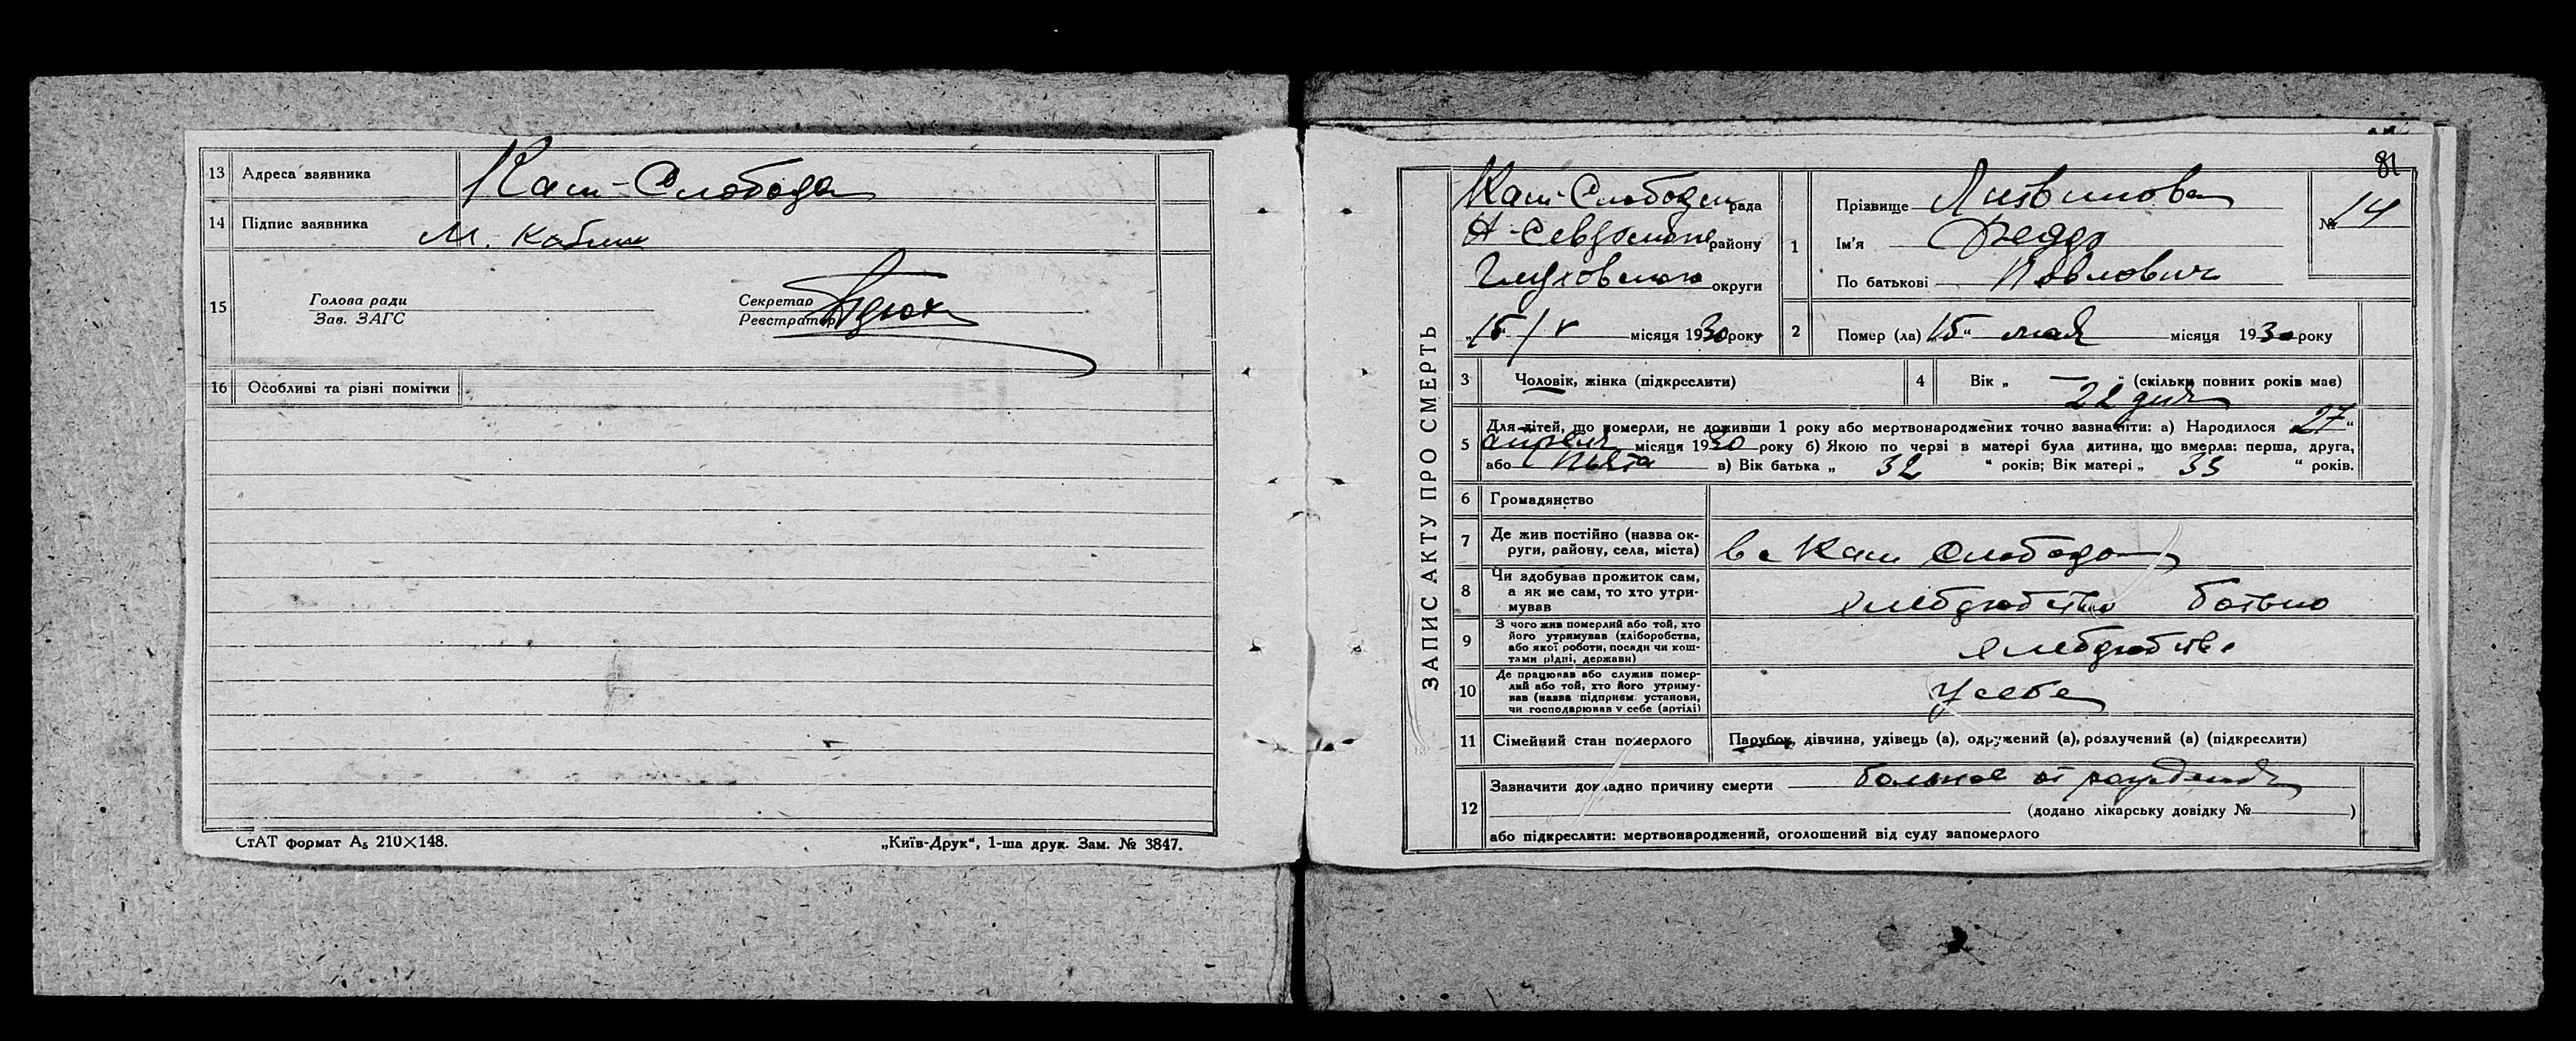 13 Адреса заявника Кам-Слобода
14 Підпис заявника М.
15 Голова ради
Зав. ЗАГС
Секретар
Реєстратор
16 Особливі та різні помітки
СтАТ формат А₅ 210×148. „Київ-Друк“, 1-ша друк. Зам. № 3847.
81
ЗАПИС АКТУ ПРО СМЕРТЬ
Кам-Слободск рада
Н-Северского району
Глуховского округи
„15/V місяця 1930 року
1 Прізвище Литвинова
Ім'я Федор
По батькові Павлович
№ 14
2 Помер (ла) „15“ мая місяця 1930 року
3 Чоловік, жінка (підкреслити)
4 Вік „ — “ (скільки повних років має)
22 дня
5 Для дітей, що померли, не доживши 1 року або мертвонароджених точно зазначіти: а) Народилося „27“
апреля місяця 1930 року б) Якою по черзі в матері була дитина, що вмерла: перша, друга,
або пята в) Вік батька „ 32 “ років; Вік матері „ 33 “ років.
6 Громадянство
7 Де жив постійно (назва ок-
руги, району, села, міста) в с Кам Слобода
8 Чи здобував прожиток сам,
а як не сам, то хто утри-
мував
9 З чого жив померлий або той, хто
його утримував (хліборобства,
або якої роботи, посади чи кош-
тами рідні, держави)
10 Де працював або служив помер-
лий або той, хто його утриму-
вав (назва підприєм. установи,
чи господарював у себе (артілі) У себе
11 Сімейний стан померлого Парубок, дівчина, удівець (а), одружений (а), розлучений (а) (підкреслити)
12 Зазначити докладно причину смерти больной от рождения
(додано лікарську довідку № )
або підкреслити: мертвонароджений, оголошений від суду запомерлого